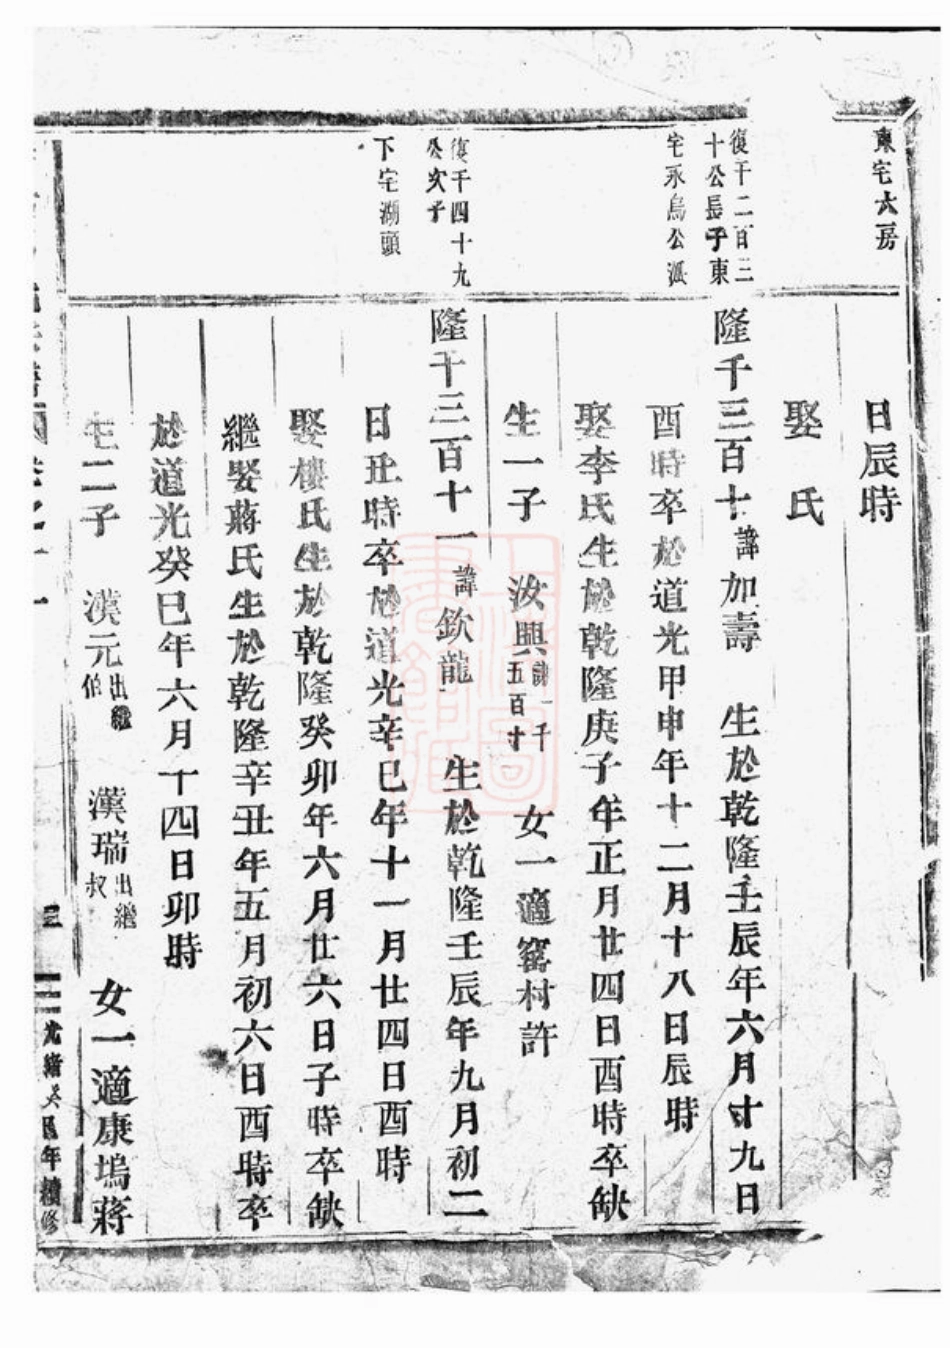 東宅大房
日辰時
娶　氏
復千二百二
十公長子東
宅永烏公派
隆千三百十諱加壽　生於乾隆壬辰年六月廿九日
酉時卒於道光甲申年十二月十八日辰時
娶李氏生於乾隆庚子年正月廿四日酉時卒缺
生一子　汝興諱一千五百廿　女一適窰村許
復千四十九
公次子
下宅湖頭
隆千三百十一諱欽龍　生於乾隆壬辰年九月初二
日丑時卒於道光辛巳年十一月廿四日酉時
娶樓氏生於乾隆癸卯年六月廿六日子時卒缺
繼娶蔣氏生於乾隆辛丑年五月初六日酉時卒
於道光癸巳年六月十四日卯時
生二子　漢元出繼伯　漢瑞出繼叔　女一適康塢蔣
卷之十一
三
光緒癸巳年續修